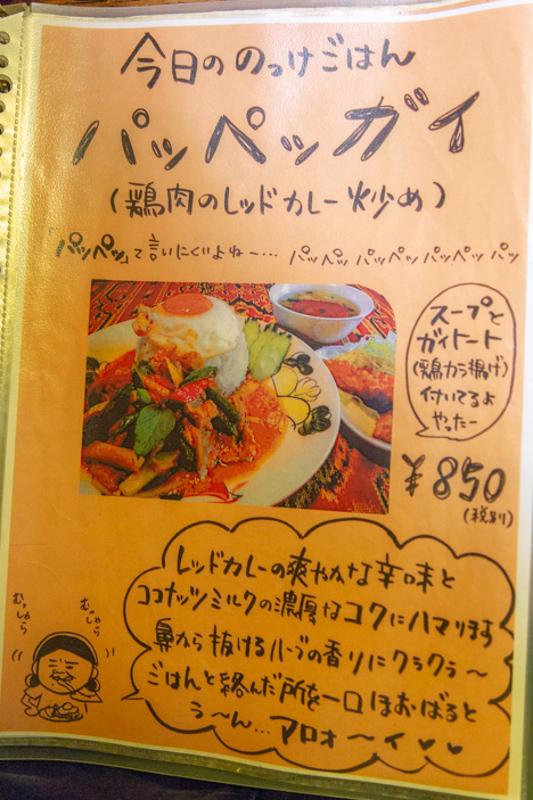 今日ののっけごはん
パッペッガイ
(鶏肉のレッドカレー炒め)
パッペッ」て言いにくいよねー… パッペッ パッペッ パッペッ パッ
スープと
ガイトート
(鶏カラ揚げ)
付いてるよ
やったー
¥850
(税別)
レッドカレーの爽やかな辛味と
ココナッツミルクの濃厚なコクにハマります
鼻から抜けるハーブの香りにクラクラ～
ごはんと絡んだ所を一口ほおばると
う～ん…アロォ～イ♥♥
むしゃら
むしゃら